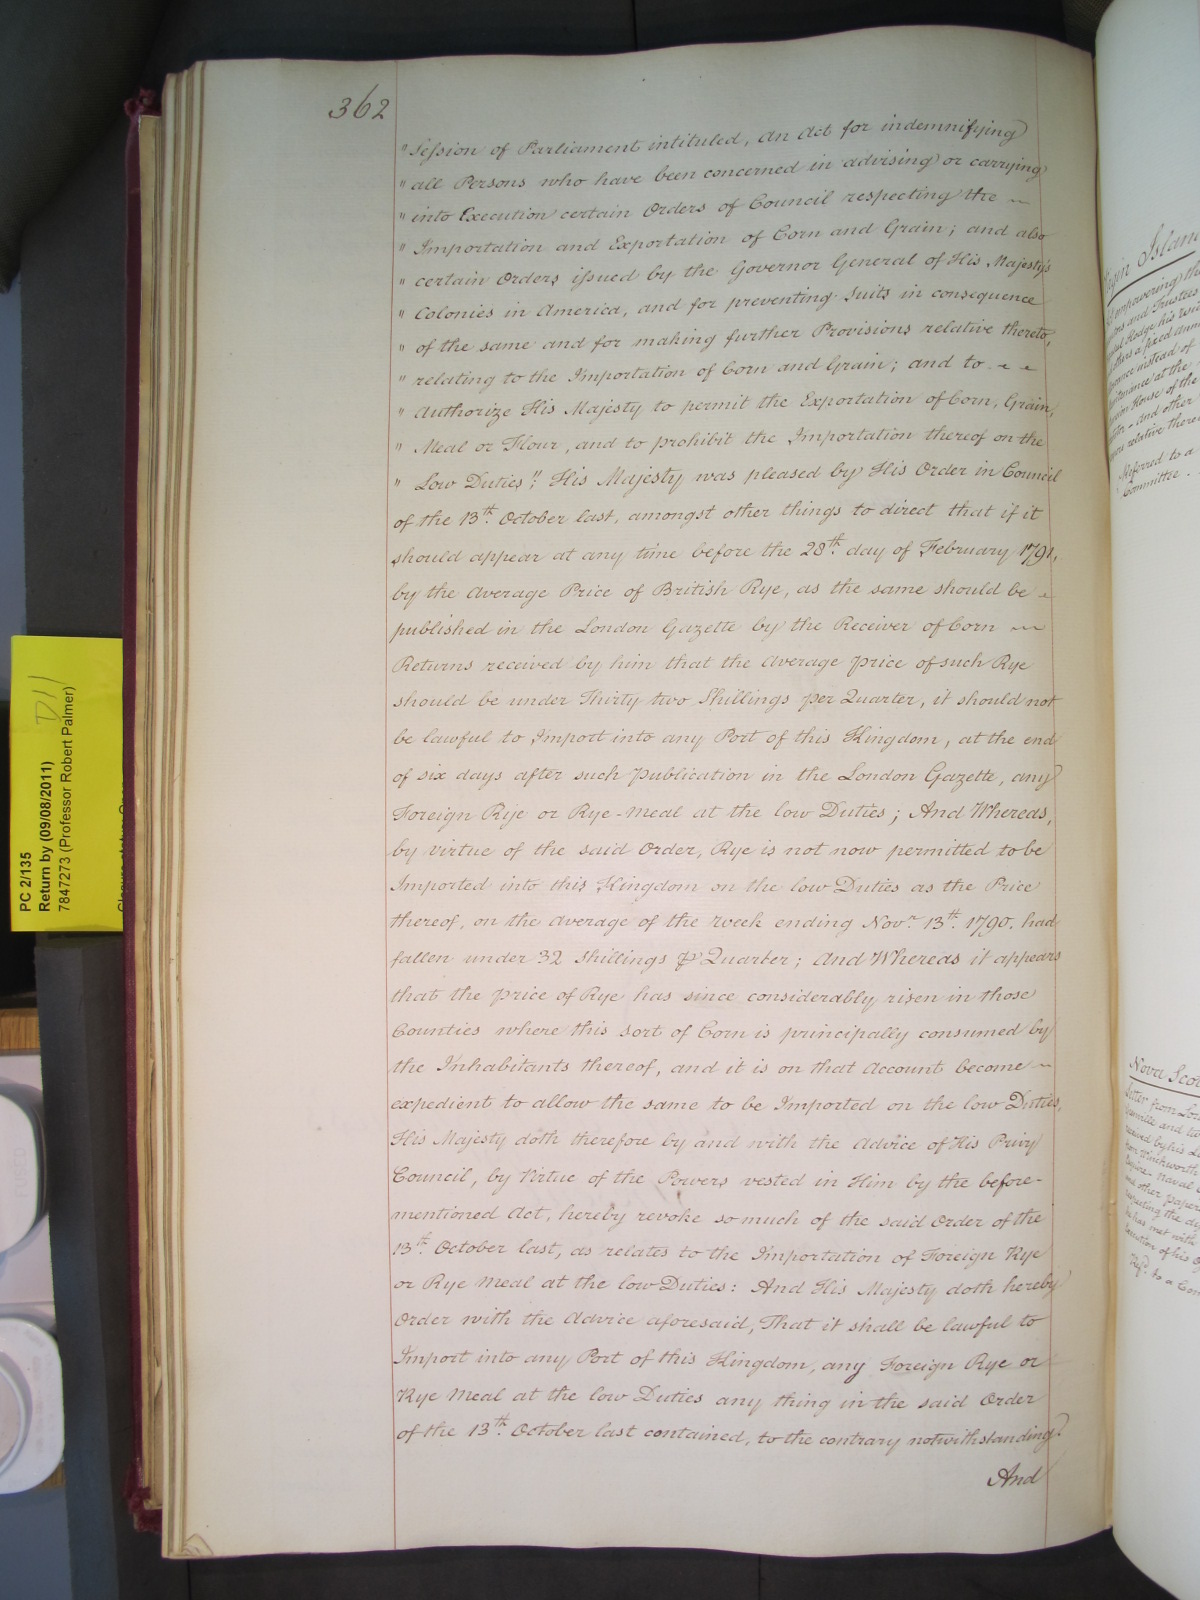 362
" Session of Parliament intituled, An Act for indemnifying
" all Persons who have been concerned in advising or carrying
" into Execution certain Orders of Council respecting the
" Importation and Exportation of Corn and Grain; and also
" certain Orders issued by the Governor General of His Majesty's
" Colonies in America, and for preventing Suits in consequence
" of the same and for making further Provisions relative thereto,
" relating to the Importation of Corn and Grain; and to
" Authorize His Majesty to permit the Exportation of Corn, Grain,
" Meal or Flour, and to prohibit the Importation thereof on the
" Low Duties"; His Majesty was pleased by His Order in Council
of the 13th. October last, amongst other things to direct that if it
should appear at any time before the 28th. day of February 1791,
by the Average Price of British Rye, as the same should be
published in the London Gazette by the Receiver of Corn
Returns received by him that the Average price of such Rye
should be under Thirty two Shillings per Quarter, it should not
be lawful to Import into any Port of this Kingdom, at the end
of six days after such Publication in the London Gazette, any
Foreign Rye or Rye-Meal at the low Duties; And Whereas,
by virtue of the said Order, Rye is not now permitted to be
Imported into this Kingdom on the low Duties as the Price
thereof, on the Average of the week ending Novr. 13th. 1790. had
fallen under 32 Shillings ⅌ Quarter; And Whereas it appears
that the price of Rye has since considerably risen in those
Counties where this sort of Corn is principally consumed by
the Inhabitants thereof, and it is on that Account become
expedient to allow the same to be Imported on the low Duties,
His Majesty doth therefore by and with the Advice of His Privy
Council, by Virtue of the Powers vested in Him by the before-
mentioned Act, hereby revoke so much of the said Order of the
13th. October last, as relates to the Importation of Foreign Rye
or Rye Meal at the low Duties: And His Majesty doth hereby
Order with the Advice aforesaid, That it shall be lawful to
Import into any Port of this Kingdom, any Foreign Rye or
Rye Meal at the low Duties any thing in the said Order
of the 13th. October last contained, to the contrary notwithstanding.
And
PC 2/135
Return by (09/08/2011)
7847273 (Professor Robert Palmer)
D11
Islan
empowering the
and Trustees
instead of
at the
House of the
and other
relative there
Referred to a
Committee.
Nova Sco
Letter from
and
received by his
Naval
other papers
respecting the
has met with
of his
Refd. to a Com